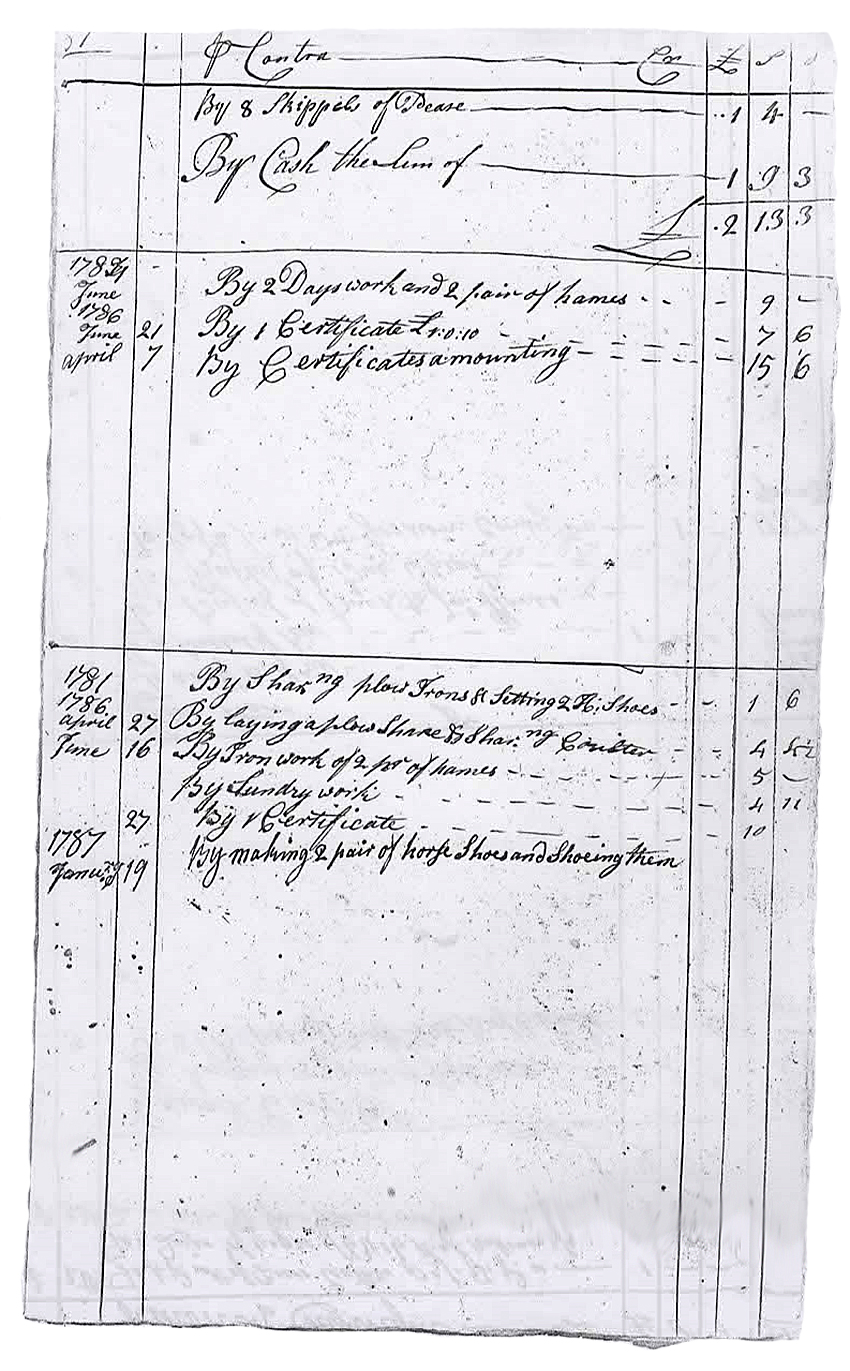 ⅌ Contra Cr £ S
By 8 Skippels of Pease 1 4 —
By Cash the Sum of 1 9 3
£ 2 13 3
June By 2 Days work and 2 pair of hames 9 —
1786
June 21 By 1 Certificate £1:0:10 7 6
april 7 By Certificates amounting 15 6
1781 By Sharng plow Irons & Setting 2 H: Shoes 1 6
1786
april 27 By laying a plow Share & Shar:ng Coulter 4
June 16 By Iron work of 2 pr of hames 5 —
By Sundry work 4 11
27 By 1 Certificate 10
1787
Janury 19 By making 2 pair of horse Shoes and Shoeing them